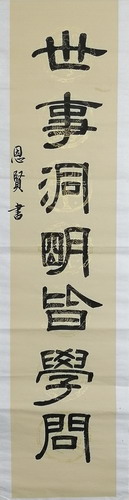 世事洞明皆學問
恩賢書